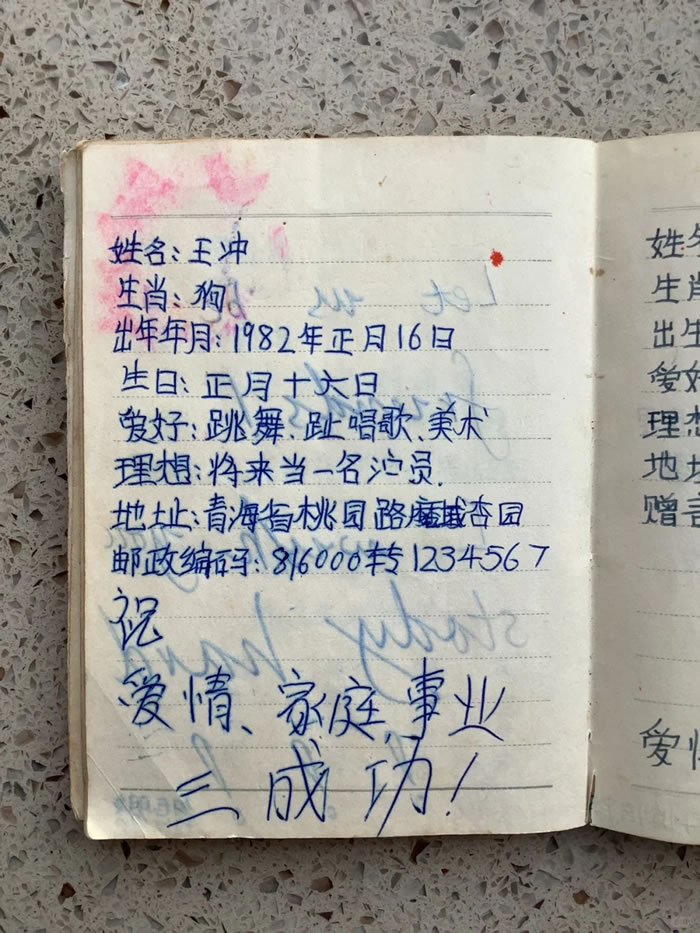 姓名:王冲
生肖:狗
出年年月:1982年正月16日
生日:正月十六日
爱好:跳舞、趾唱歌、美术
理想:将来当一名沪员.
地址:青海省桃园路杏园
邮政编码:816000转1234567
祝
爱情、家庭、事业
三成功!
姓名
生肖
出生
爱好
理想
地址
赠言
爱情
Let us
study hard